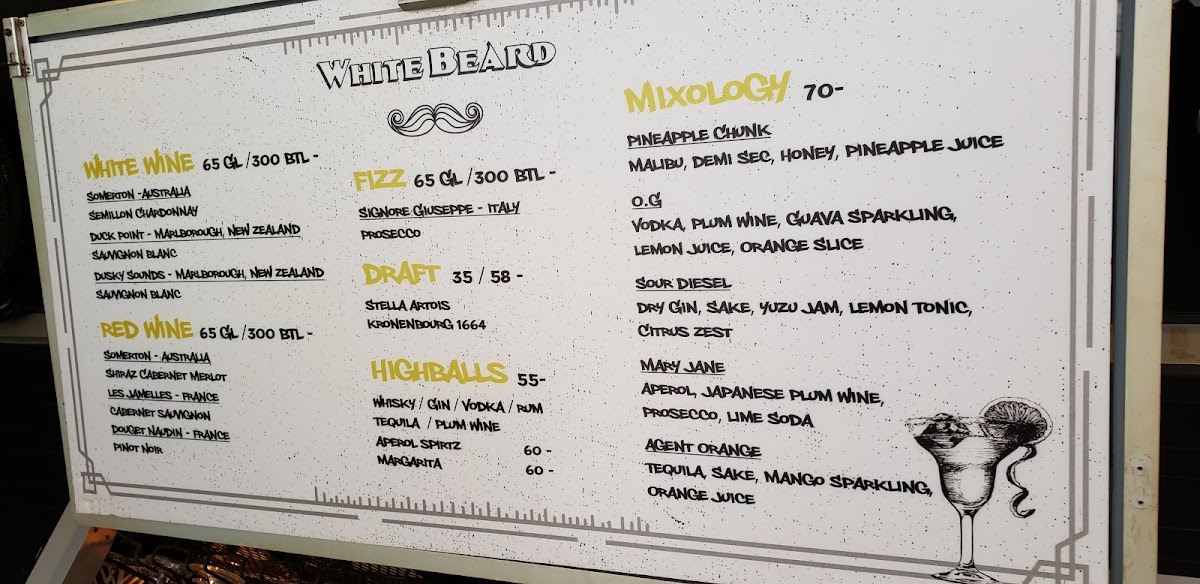 WHITE BEARD
WHITE WINE 65 GL /300 BTL -
SOMERTON - AUSTRALIA
SEMILLON CHARDONNAY
DUCK POINT - MARLBOROUGH, NEW ZEALAND
SAUVIGNON BLANC
DUSKY SOUNDS - MARLBOROUGH, NEW ZEALAND
SAUVIGNON BLANC
RED WINE 65 GL /300 BTL -
SOMERTON - AUSTRALIA
SHIRAZ CABERNET MERLOT
LES JAMELLES - FRANCE
CABERNET SAUVIGNON
DOUGET NAUDIN - FRANCE
PINOT NOIR
FIZZ 65 GL /300 BTL -
SIGNORE GIUSEPPE - ITALY
PROSECCO
DRAFT 35 / 58 -
STELLA ARTOIS
KRONENBOURG 1664
HIGHBALLS 55-
WHISKY / GIN / VODKA / RUM
TEQUILA / PLUM WINE
APEROL SPIRTZ 60 -
MARGARITA 60 -
MIXOLOGY 70-
PINEAPPLE CHUNK
MALIBU, DEMI SEC, HONEY, PINEAPPLE JUICE
O.G
VODKA, PLUM WINE, GUAVA SPARKLING,
LEMON JUICE, ORANGE SLICE
SOUR DIESEL
DRY GIN, SAKE, YUZU JAM, LEMON TONIC,
CITRUS ZEST
MARY JANE
APEROL, JAPANESE PLUM WINE,
PROSECCO, LIME SODA
AGENT ORANGE
TEQUILA, SAKE, MANGO SPARKLING,
ORANGE JUICE